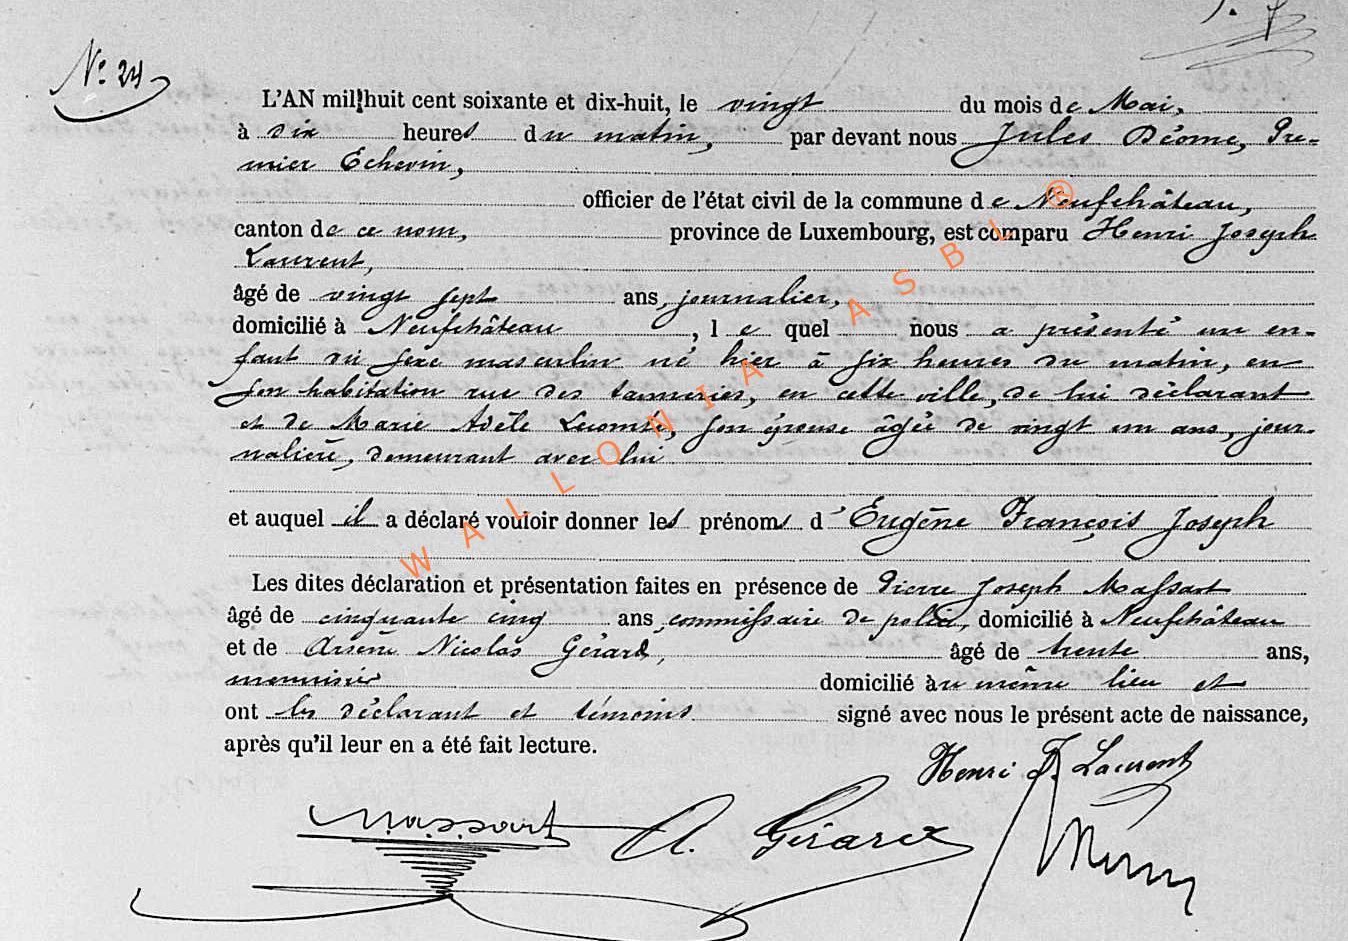 N° 24
L'AN mil huit cent soixante et dix-huit, le vingt du mois de Mai,
à dix heures du matin, par devant nous Jules Déome, Pre-
mier Echevin,
officier de l'état civil de la commune de Neufchâteau,
canton de ce nom, province de Luxembourg, est comparu Henri Joseph
Laurent,
âgé de vingt sept ans, journalier,
domicilié à Neufchâteau, lequel nous a présenté un en-
fant du sexe masculin né hier à six heures du matin, en
son habitation rue des tanneries, en cette ville, de lui déclarant
et de Marie Adèle Lecomte, son épouse âgée de vingt un ans, jour-
nalière, demeurant avec lui
et auquel il a déclaré vouloir donner les prénoms d'Eugène François Joseph
Les dites déclaration et présentation faites en présence de Pierre Joseph Massart
âgé de cinquante cinq ans, commissaire de police, domicilié à Neufchâteau
et de Arsène Nicolas Gérard, âgé de trente ans,
menuisier domicilié au même lieu et
ont les déclarant et témoins signé avec nous le présent acte de naissance,
après qu'il leur en a été fait lecture.
Henri J. Laurent
Massart A. Gérard
WALLONIA ASBL ®